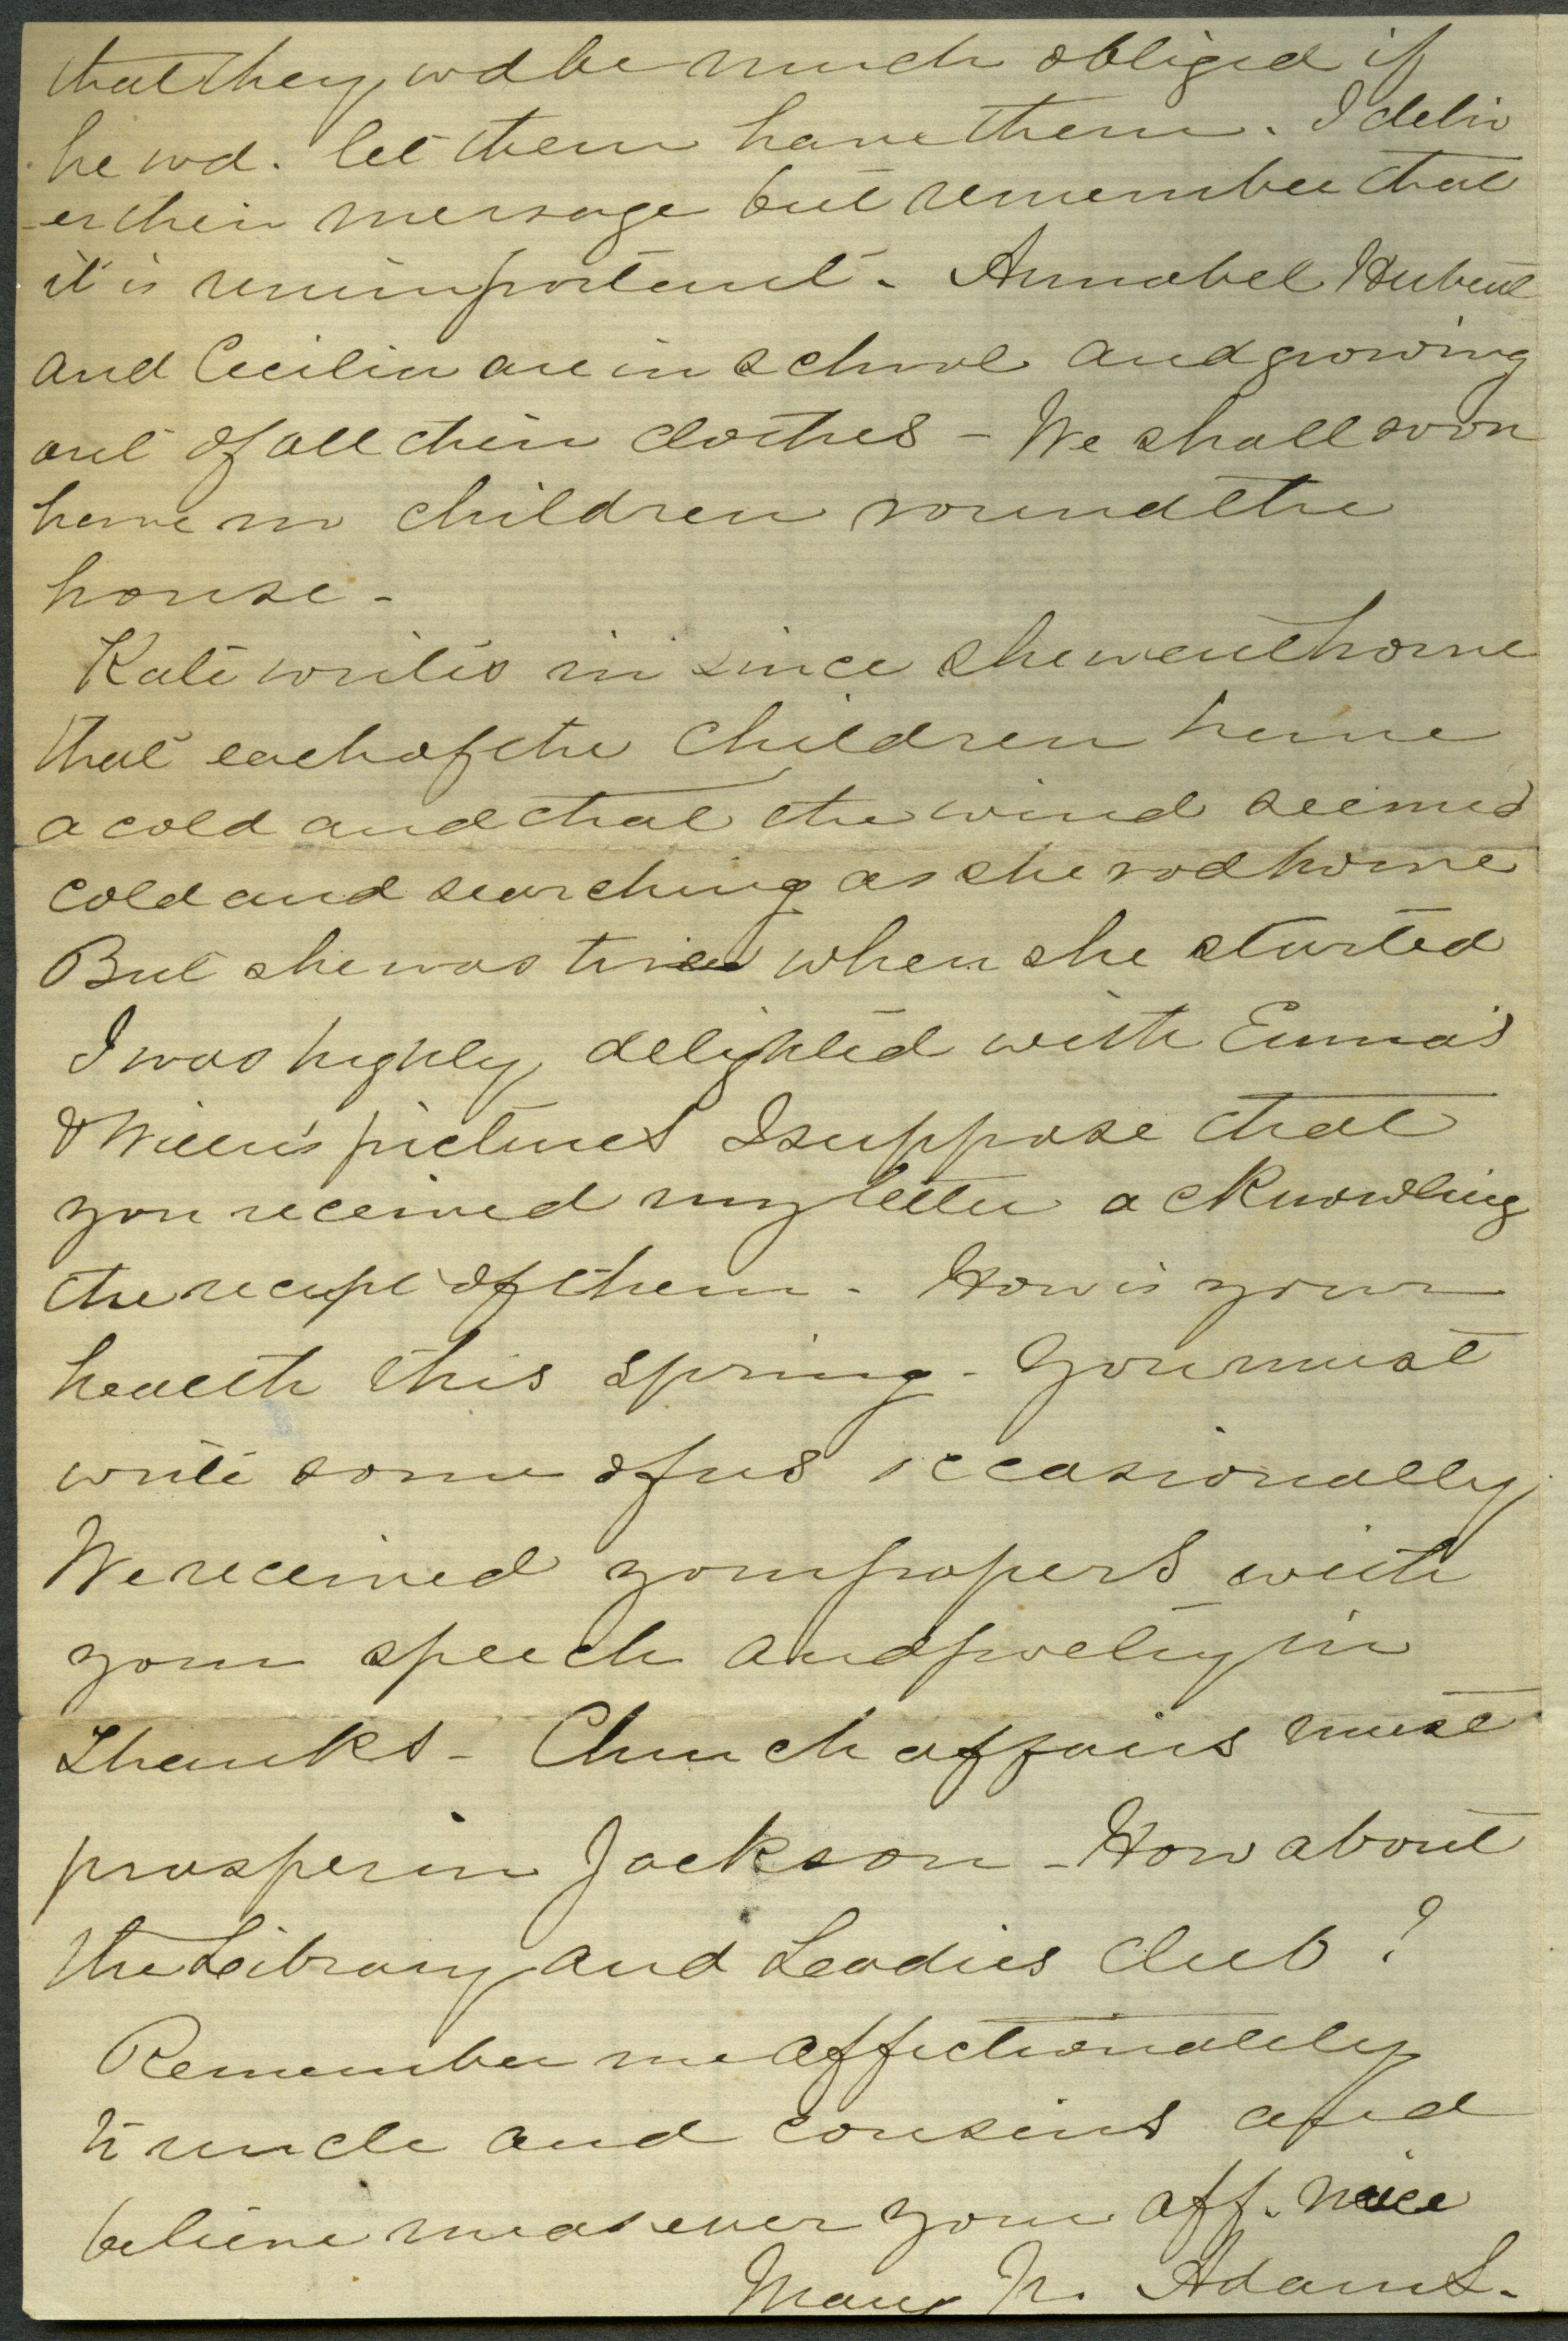 that they wd be much obliged if
he wd. let them have them. I deliv
-er their message but remember that
it is unimportant - Annabel Hubert
and Cecilia are in school and growing
out of all their clothes - We shall soon
have no children round the
house -
Kate writes me since she went home
that each of the children have
a cold and that the wind seemed
cold and searching as she rod home
But she was tired when she started
I was highly delighted with Emma's
& Willie's pictures I suppose that
you received my letter acknowling
the recept of them - How is your
health this spring - You must
write some of us occasionally
We received your papers with
your speech and poetry in
Thanks - Church affairs must
prosper in Jackson - How about
the Library and Leadies Club ?
Remember me affectionately
to uncle and cousins and
believe me as ever your aff. niece
Mary N. Adams -